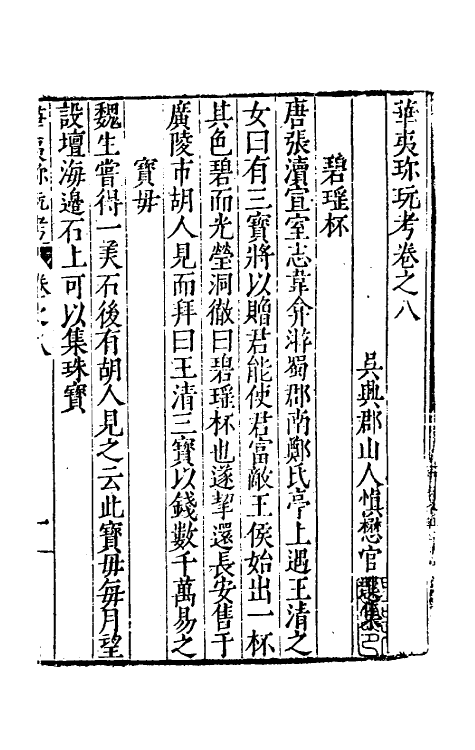 華夷珎玩考卷之八
吳興郡山人慎懋官選集
碧瑤杯
唐張瀆宣室志韋弇游蜀郡南鄭氏亭上遇玉清之
女曰有三寶將以贈君能使君富敵王侯始出一杯
其色碧而光瑩洞徹曰碧瑶杯也遂挈還長安售于
廣陵市胡人見而拜曰玉清三寶以錢數千萬易之
寶毋
魏生嘗得一美石後有胡人見之云此寶毋每月望
設壇海邊石上可以集珠寶
華夷珎玩考 卷之八 一